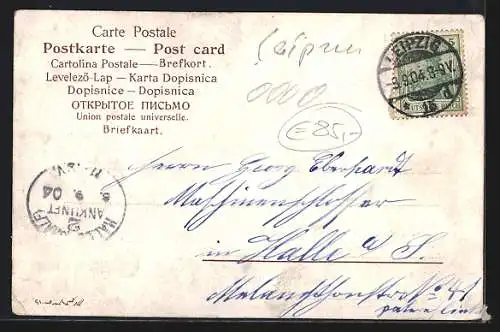 Carte Postale
Postkarte — Post card
Cartolina Postale — Brefkort.
Levelező-Lap — Karta Dopisnica
Dopisnice — Dopisnica
ОТКРЫТОЕ ПИСЬМО
Union postale universelle.
Briefkaart.
LEIPZIG
9.04
(=85,-
HALLE
ANKUNFT
9 04
Herrn Georg Eberhardt
Maschinenschlosser
in Halle a/S.
Melanchthonstraße No 41